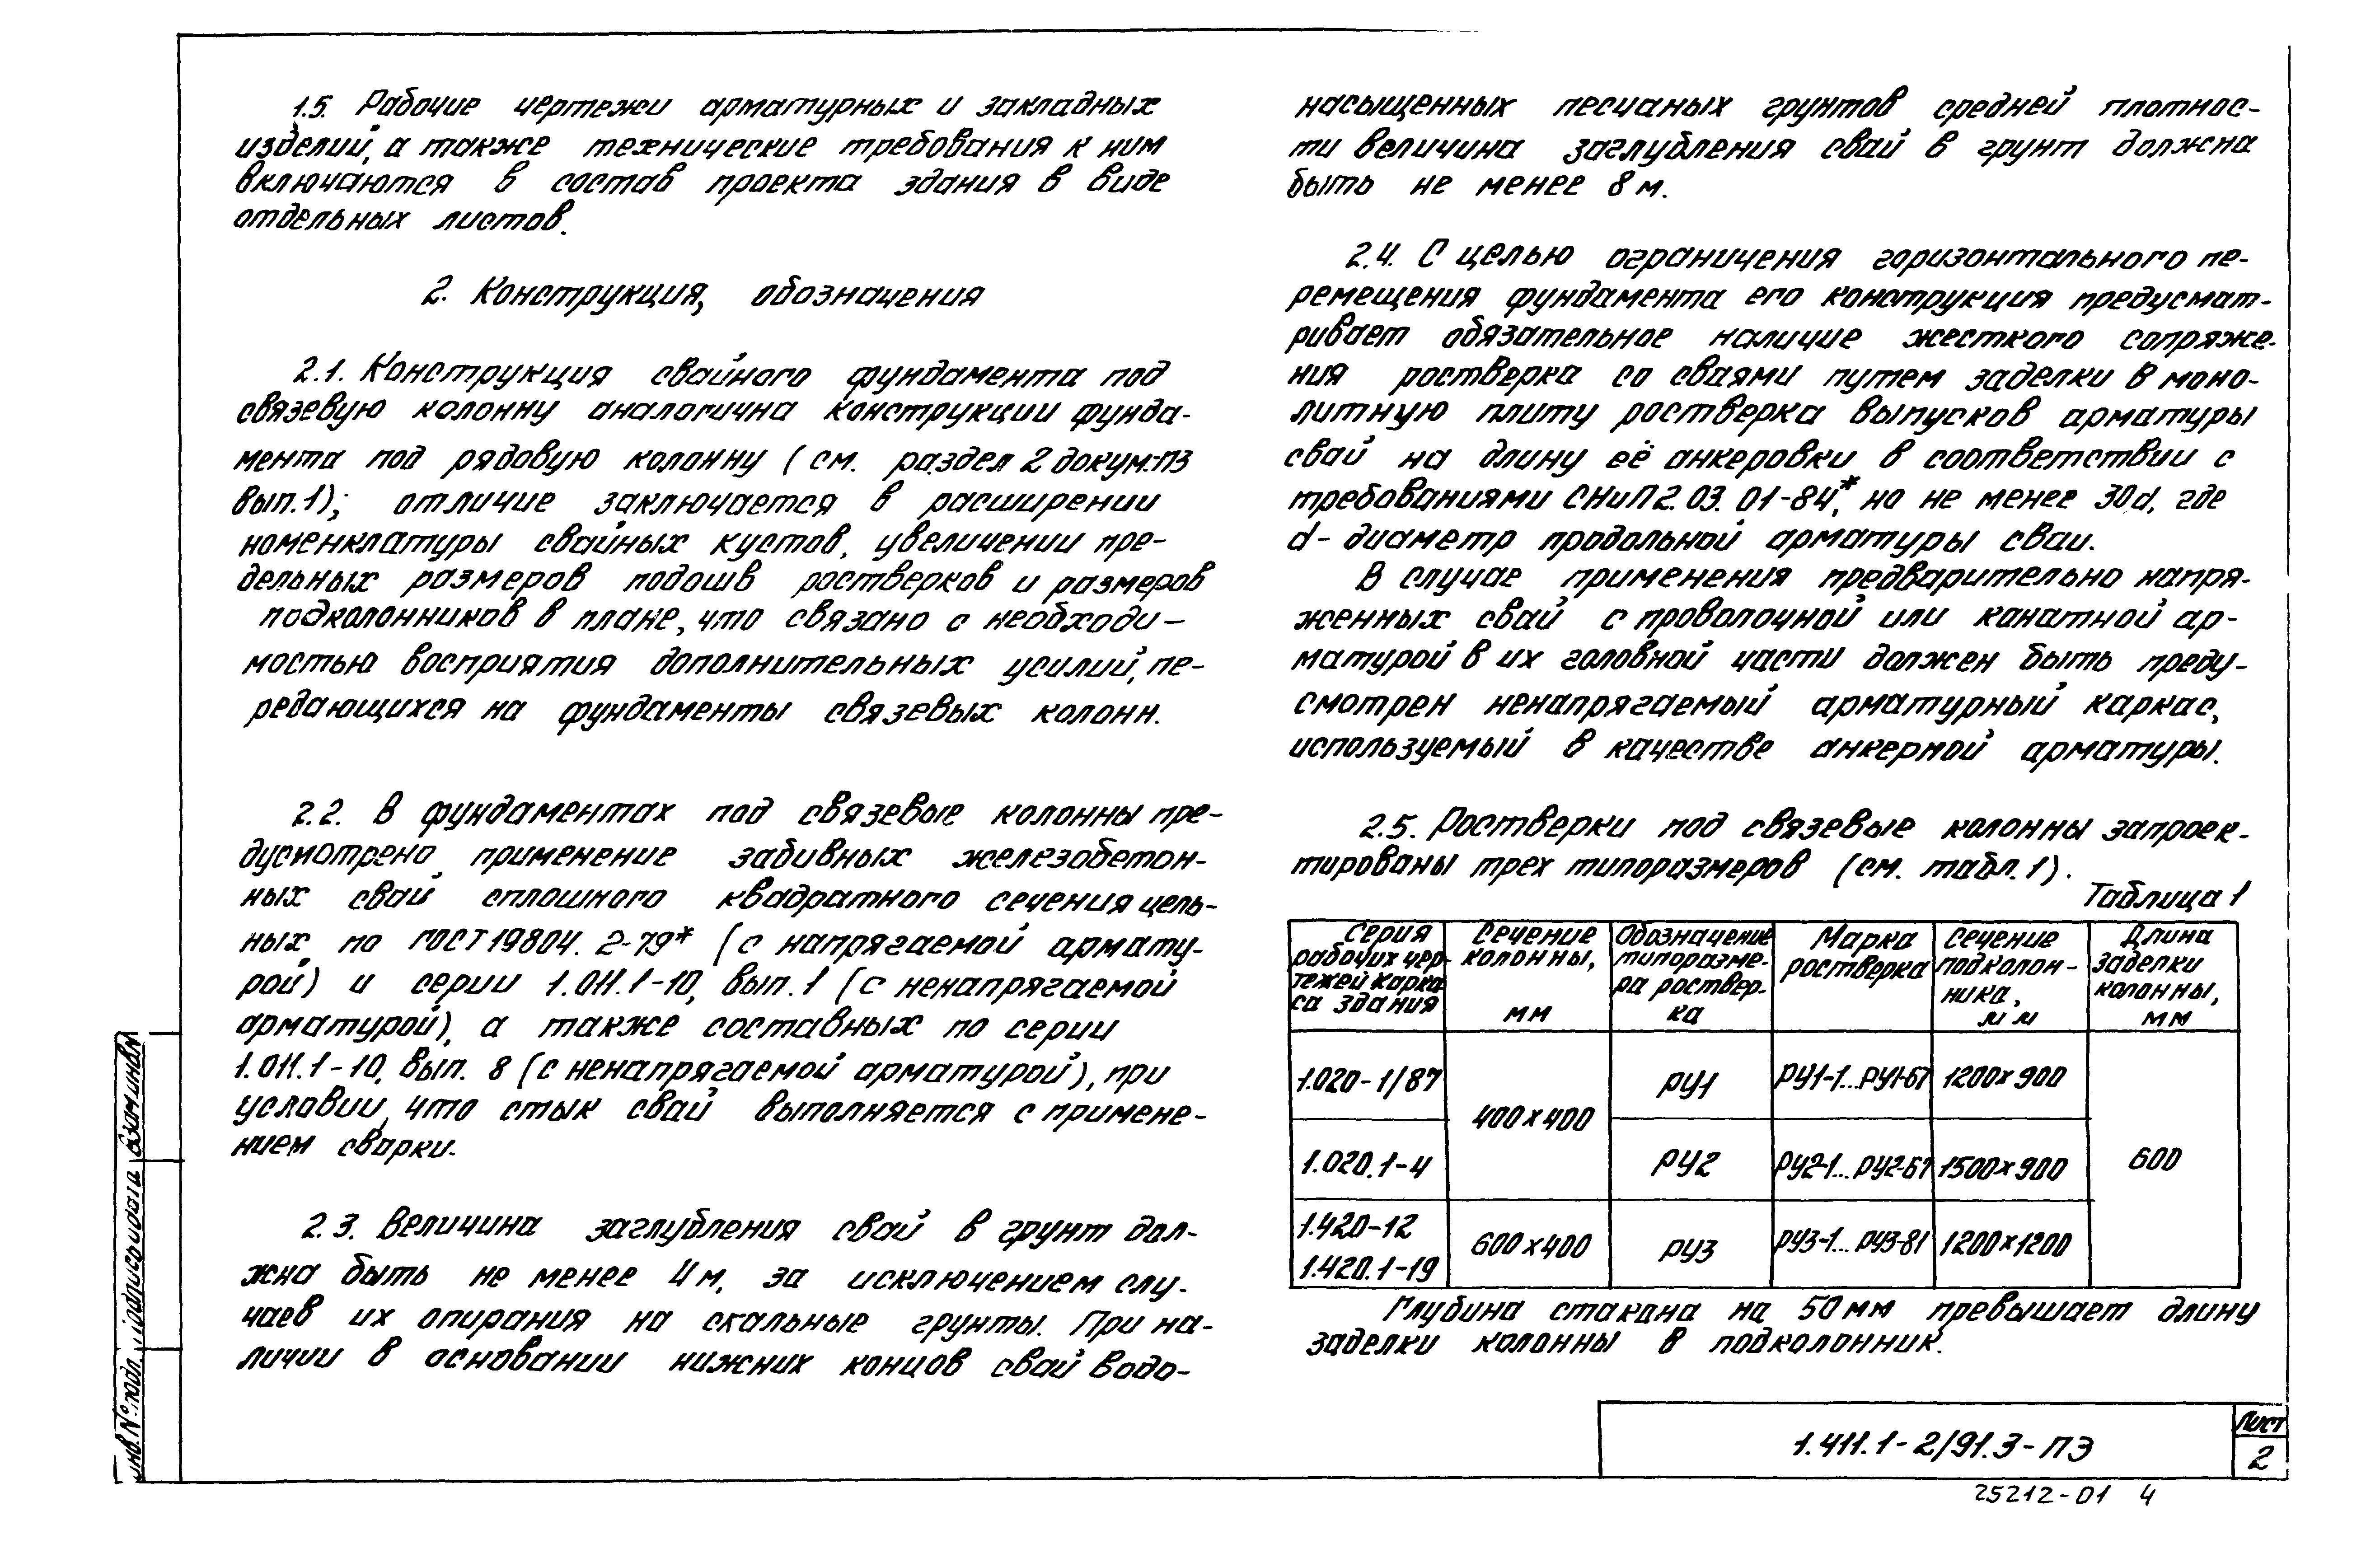 1.5. Рабочие чертежи арматурных и закладных
изделий, а также технические требования к ним
включаются в состав проекта здания в виде
отдельных листов.
2. Конструкция, обозначения
2.1. Конструкция свайного фундамента под
связевую колонну аналогична конструкции фунда-
мента под рядовую колонну (см. раздел 2 докум.-ПЗ
вып.1); отличие заключается в расширении
номенклатуры свайных кустов, увеличении пре-
дельных размеров подошв ростверков и размеров
подколонников в плане, что связано с необходи-
мостью восприятия дополнительных усилий, пе-
редающихся на фундаменты связевых колонн.
2.2. В фундаментах под связевые колонны пре-
дусмотрено применение забивных железобетон-
ных свай сплошного квадратного сечения цель-
ных по ГОСТ 19804. 2-79* (с напрягаемой армату-
рой) и серии 1.011.1-10, вып.1 (с ненапрягаемой
арматурой), а также составных по серии
1.011.1-10, вып. 8 (с ненапрягаемой арматурой), при
условии, что стык свай выполняется с примене-
нием сварки.
2.3. Величина заглубления свай в грунт дол-
жна быть не менее 4м, за исключением слу-
чаев их опирания на скальные грунты. При на-
личии в основании нижних концов свай водо-
насыщенных песчаных грунтов средней плотнос-
ти величина заглубления свай в грунт должна
быть не менее 8м.
2.4. С целью ограничения горизонтального пе-
ремещения фундамента его конструкция предусмат-
ривает обязательное наличие жесткого сопряже-
ния ростверка со сваями путем заделки в моно-
литную плиту ростверка выпусков арматуры
свай на длину её анкеровки в соответствии с
требованиями СНиП 2.03.01-84*, но не менее 30d, где
d - диаметр продольной арматуры сваи.
В случае применения предварительно напря-
женных свай с проволочной или канатной ар-
матурой в их головной части должен быть преду-
смотрен ненапрягаемый арматурный каркас,
используемый в качестве анкерной арматуры.
2.5. Ростверки под связевые колонны запроек-
тированы трех типоразмеров (см. табл.1).
Таблица 1
Серия рабочих чер- тежей карка са здания Сечение колонны, мм Обозначение типоразме- ра роствер- ка Марка ростверка Сечение подколон- ника, мм Длина заделки колонны, мм
1.020-1/87 400×400 РУ1 РУ1-1...РУ1-67 1200×900 600
1.020.1-4 РУ2 РУ2-1...РУ2-67 1500×900
1.420-12 1.420.1-19 600×400 РУ3 РУ3-1...РУ3-81 1200×1200
Глубина стакана на 50мм превышает длину
заделки колонны в подколонник.
1.411.1-2/91.3-ПЗ
Лист
2
25212-01 4
Инв.№подл. Подпись и дата Взам.инв№